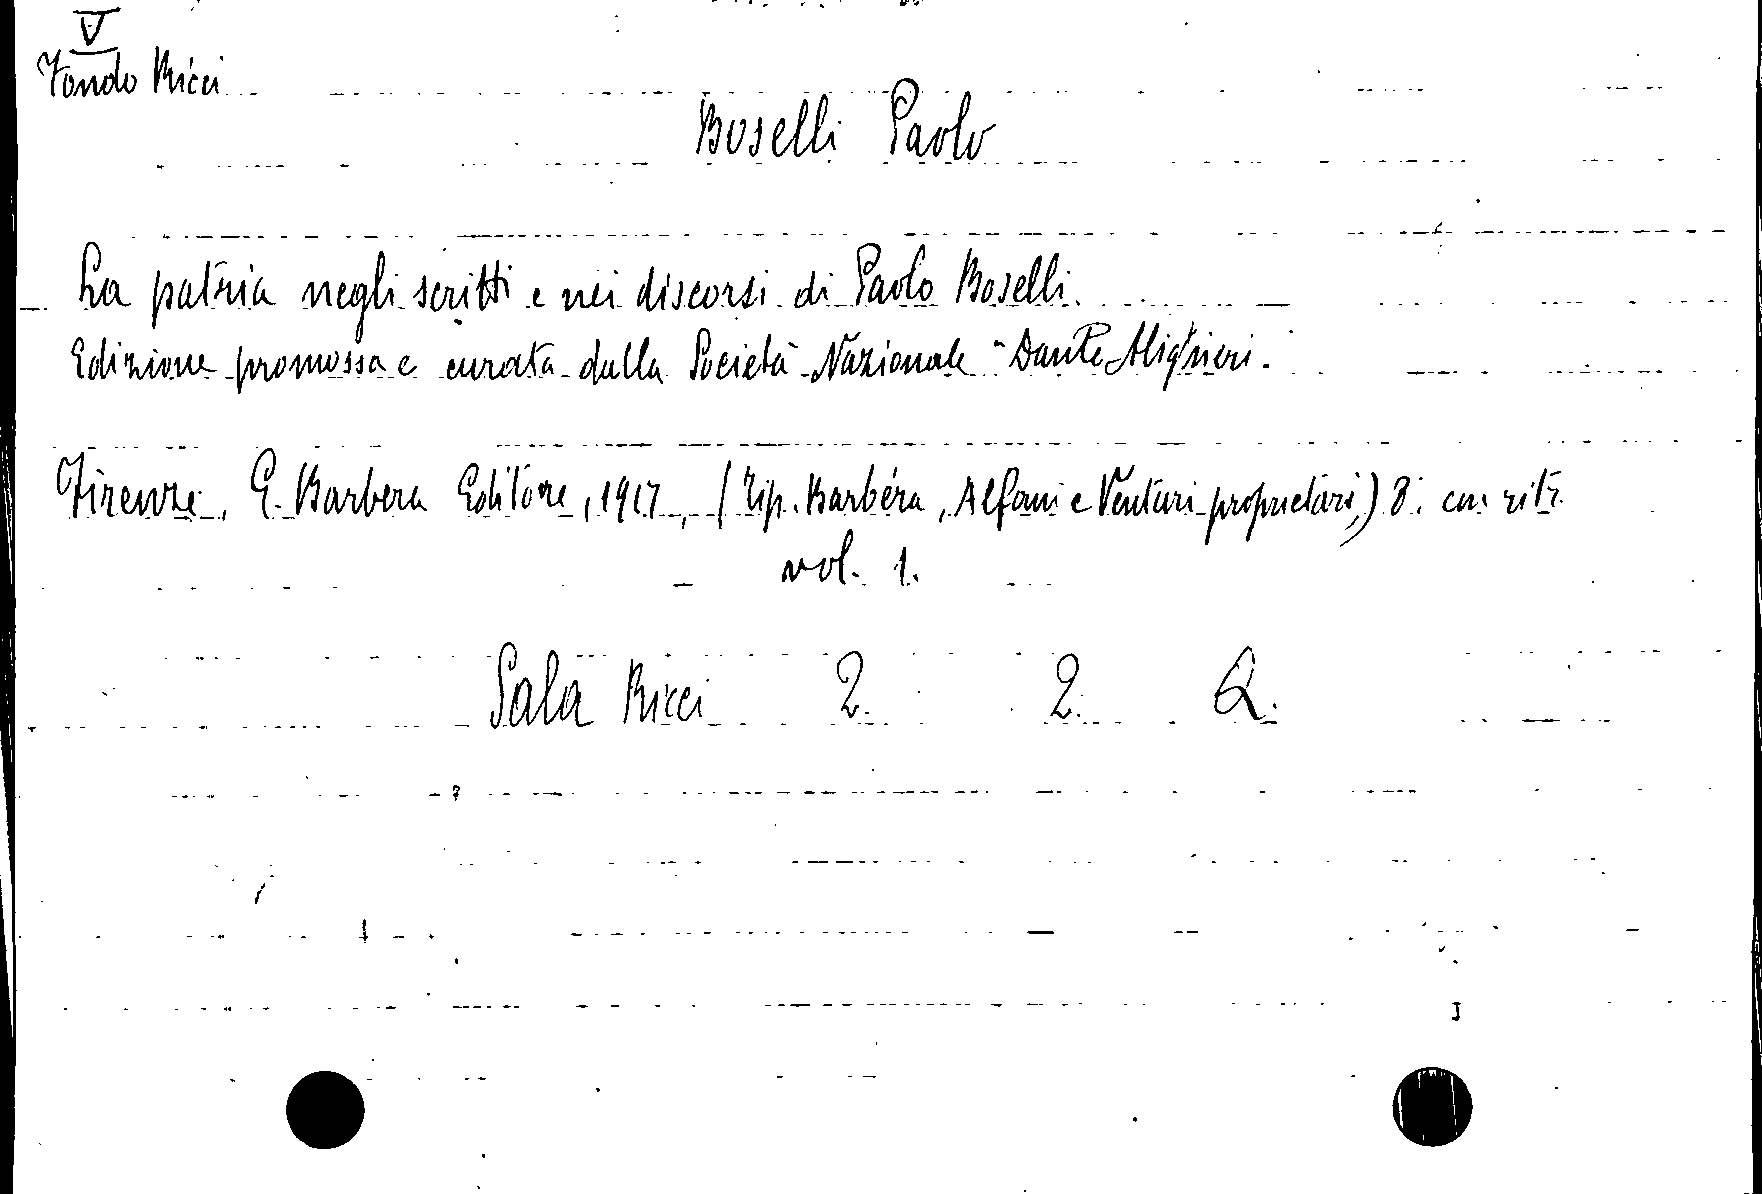 V
Fondo Ricci
Boselli Paolo
La patria negli scritti e nei discorsi di Paolo Boselli.
Edizione promossa e curata dalla Società Nazionale "Dante Alighieri.
Firenze, G. Barbera Editore, 1917, (Tip. Barbéra, Alfani e Venturi proprietari,) 8: con ritr.
vol. 1.
Sala Ricci 2. 2. Q.